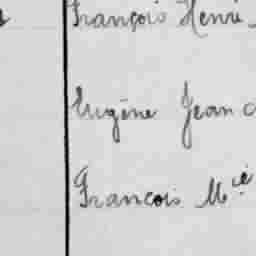 François Henri
Eugène Jean
François Mié